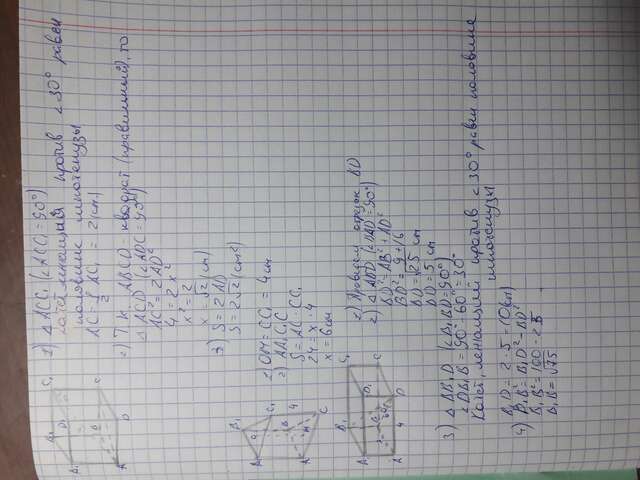 1) △ ACC₁ (∠ACC₁ = 90°)
катет, лежащий против ∠30° равен
половине гипотенузы
AC = 1/2 AC₁ = 2 (см)
2) Т.к. ABCD - квадрат (правильный), то
△ ACD (∠ADC = 90°)
AC² = 2AD²
4 = 2x²
x² = 2
x = √2 (см)
3) S = 2 AD
S = 2√2 (см²)
A₁
B₁
C₁
D₁
A
B
C
D
1) OM = CC₁ = 4 см
2) AA₁C₁C
S = AC · CC₁
24 = x · 4
x = 6 см
A₁
C₁
B
4
A
C
1) Проведем отрезок BD
2) △ ABD (∠BAD = 90°)
BD² = AB² + AD²
BD² = 9 + 16
BD = √25
BD = 5 см
B₁
C₁
A₁
D₁
C
A
4
D
3) △ BB₁D (∠B₁BD = 90°)
∠DB₁B = 90° - 60° = 30°
Катет, лежащий против ∠30° равен половине
гипотенузы
4) B₁D = 2 · 5 = 10 (см)
B₁B² = B₁D² - BD²
B₁B² = 100 - 25
B₁B = √75